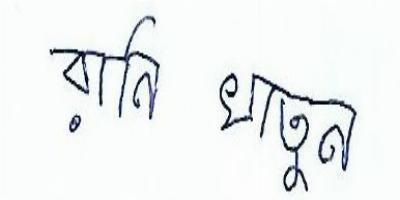 রানি খাতুন